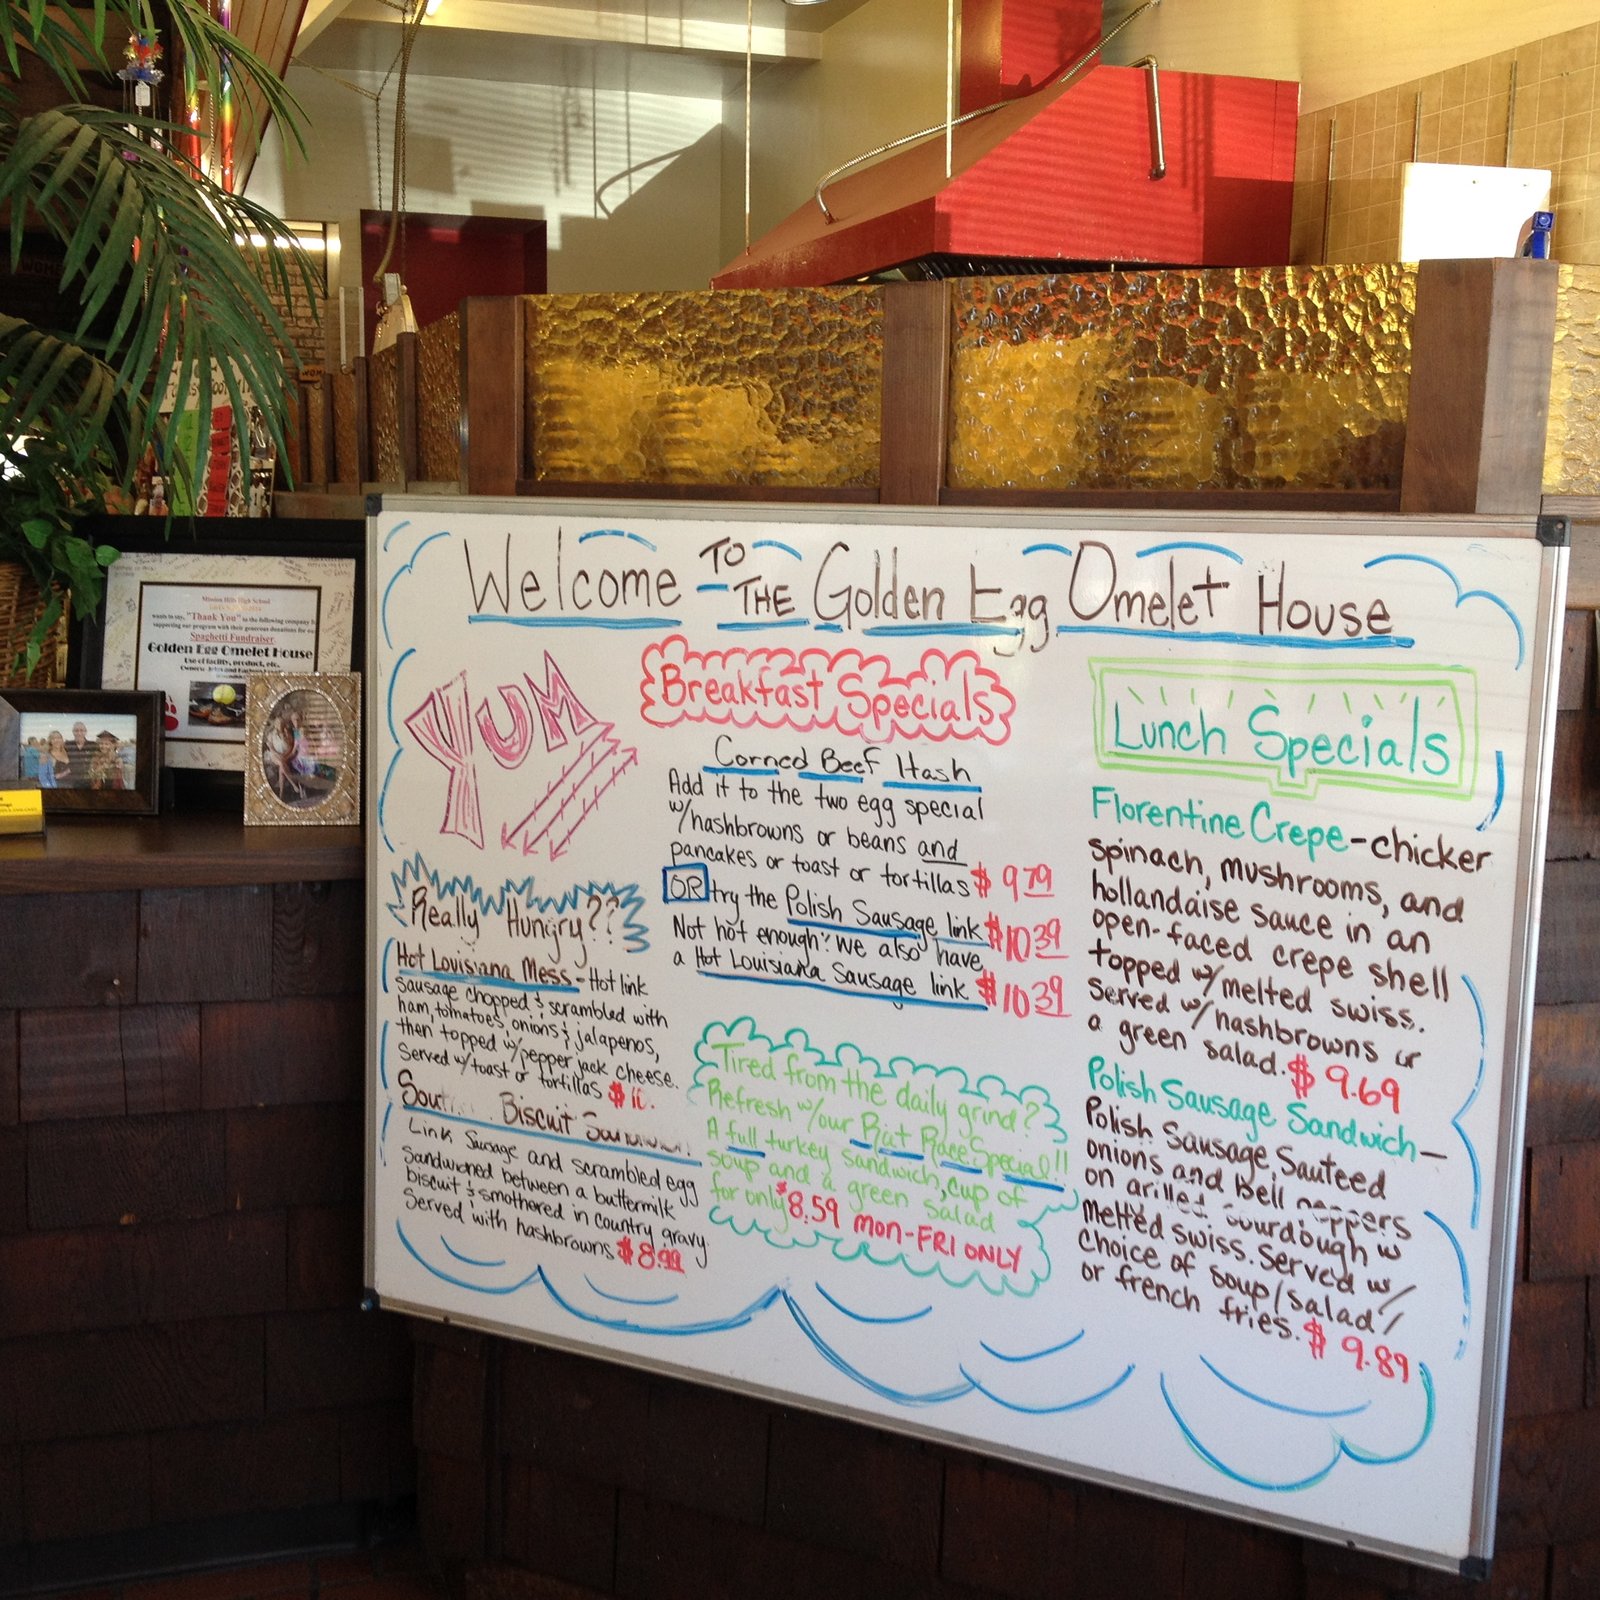 Welcome TO THE Golden Egg Omelet House
YUM
Really Hungry??
Hot Louisiana Mess - Hot link
sausage chopped & scrambled with
ham, tomatoes, onions & jalapenos,
then topped w/pepper jack cheese.
Served w/toast or tortillas $
Biscuit
Link Sausage and scrambled egg
Sandwiched between a buttermilk
biscuit & smothered in country gravy.
Served with hashbrowns $8.99
Breakfast Specials
Corned Beef Hash
Add it to the two egg special
w/hashbrowns or beans and
pancakes or toast or tortillas $9.79
OR try the Polish Sausage link $10.39
Not hot enough? We also have
a Hot Louisiana Sausage link $10.39
Tired from the daily grind?
Refresh w/our Rat Race Special!!
A full turkey sandwich, cup of
soup and a green salad
for only $8.59 MON-FRI ONLY
Lunch Specials
Florentine Crepe - chicken
spinach, mushrooms, and
hollandaise sauce in an
open-faced crepe shell
topped w/melted swiss.
Served w/hashbrowns or
a green salad. $9.69
Polish Sausage Sandwich -
Polish Sausage, Sauteed
onions and bell peppers
on grilled sourdough w
melted swiss. Served w/
choice of soup/salad/
or french fries. $9.89
Mission Hills High School
wants to say, "Thank You" to the following company
supporting our program with their generous donations for our
Spaghetti Fundraiser.
Golden Egg Omelet House
Use of facility, product, etc.